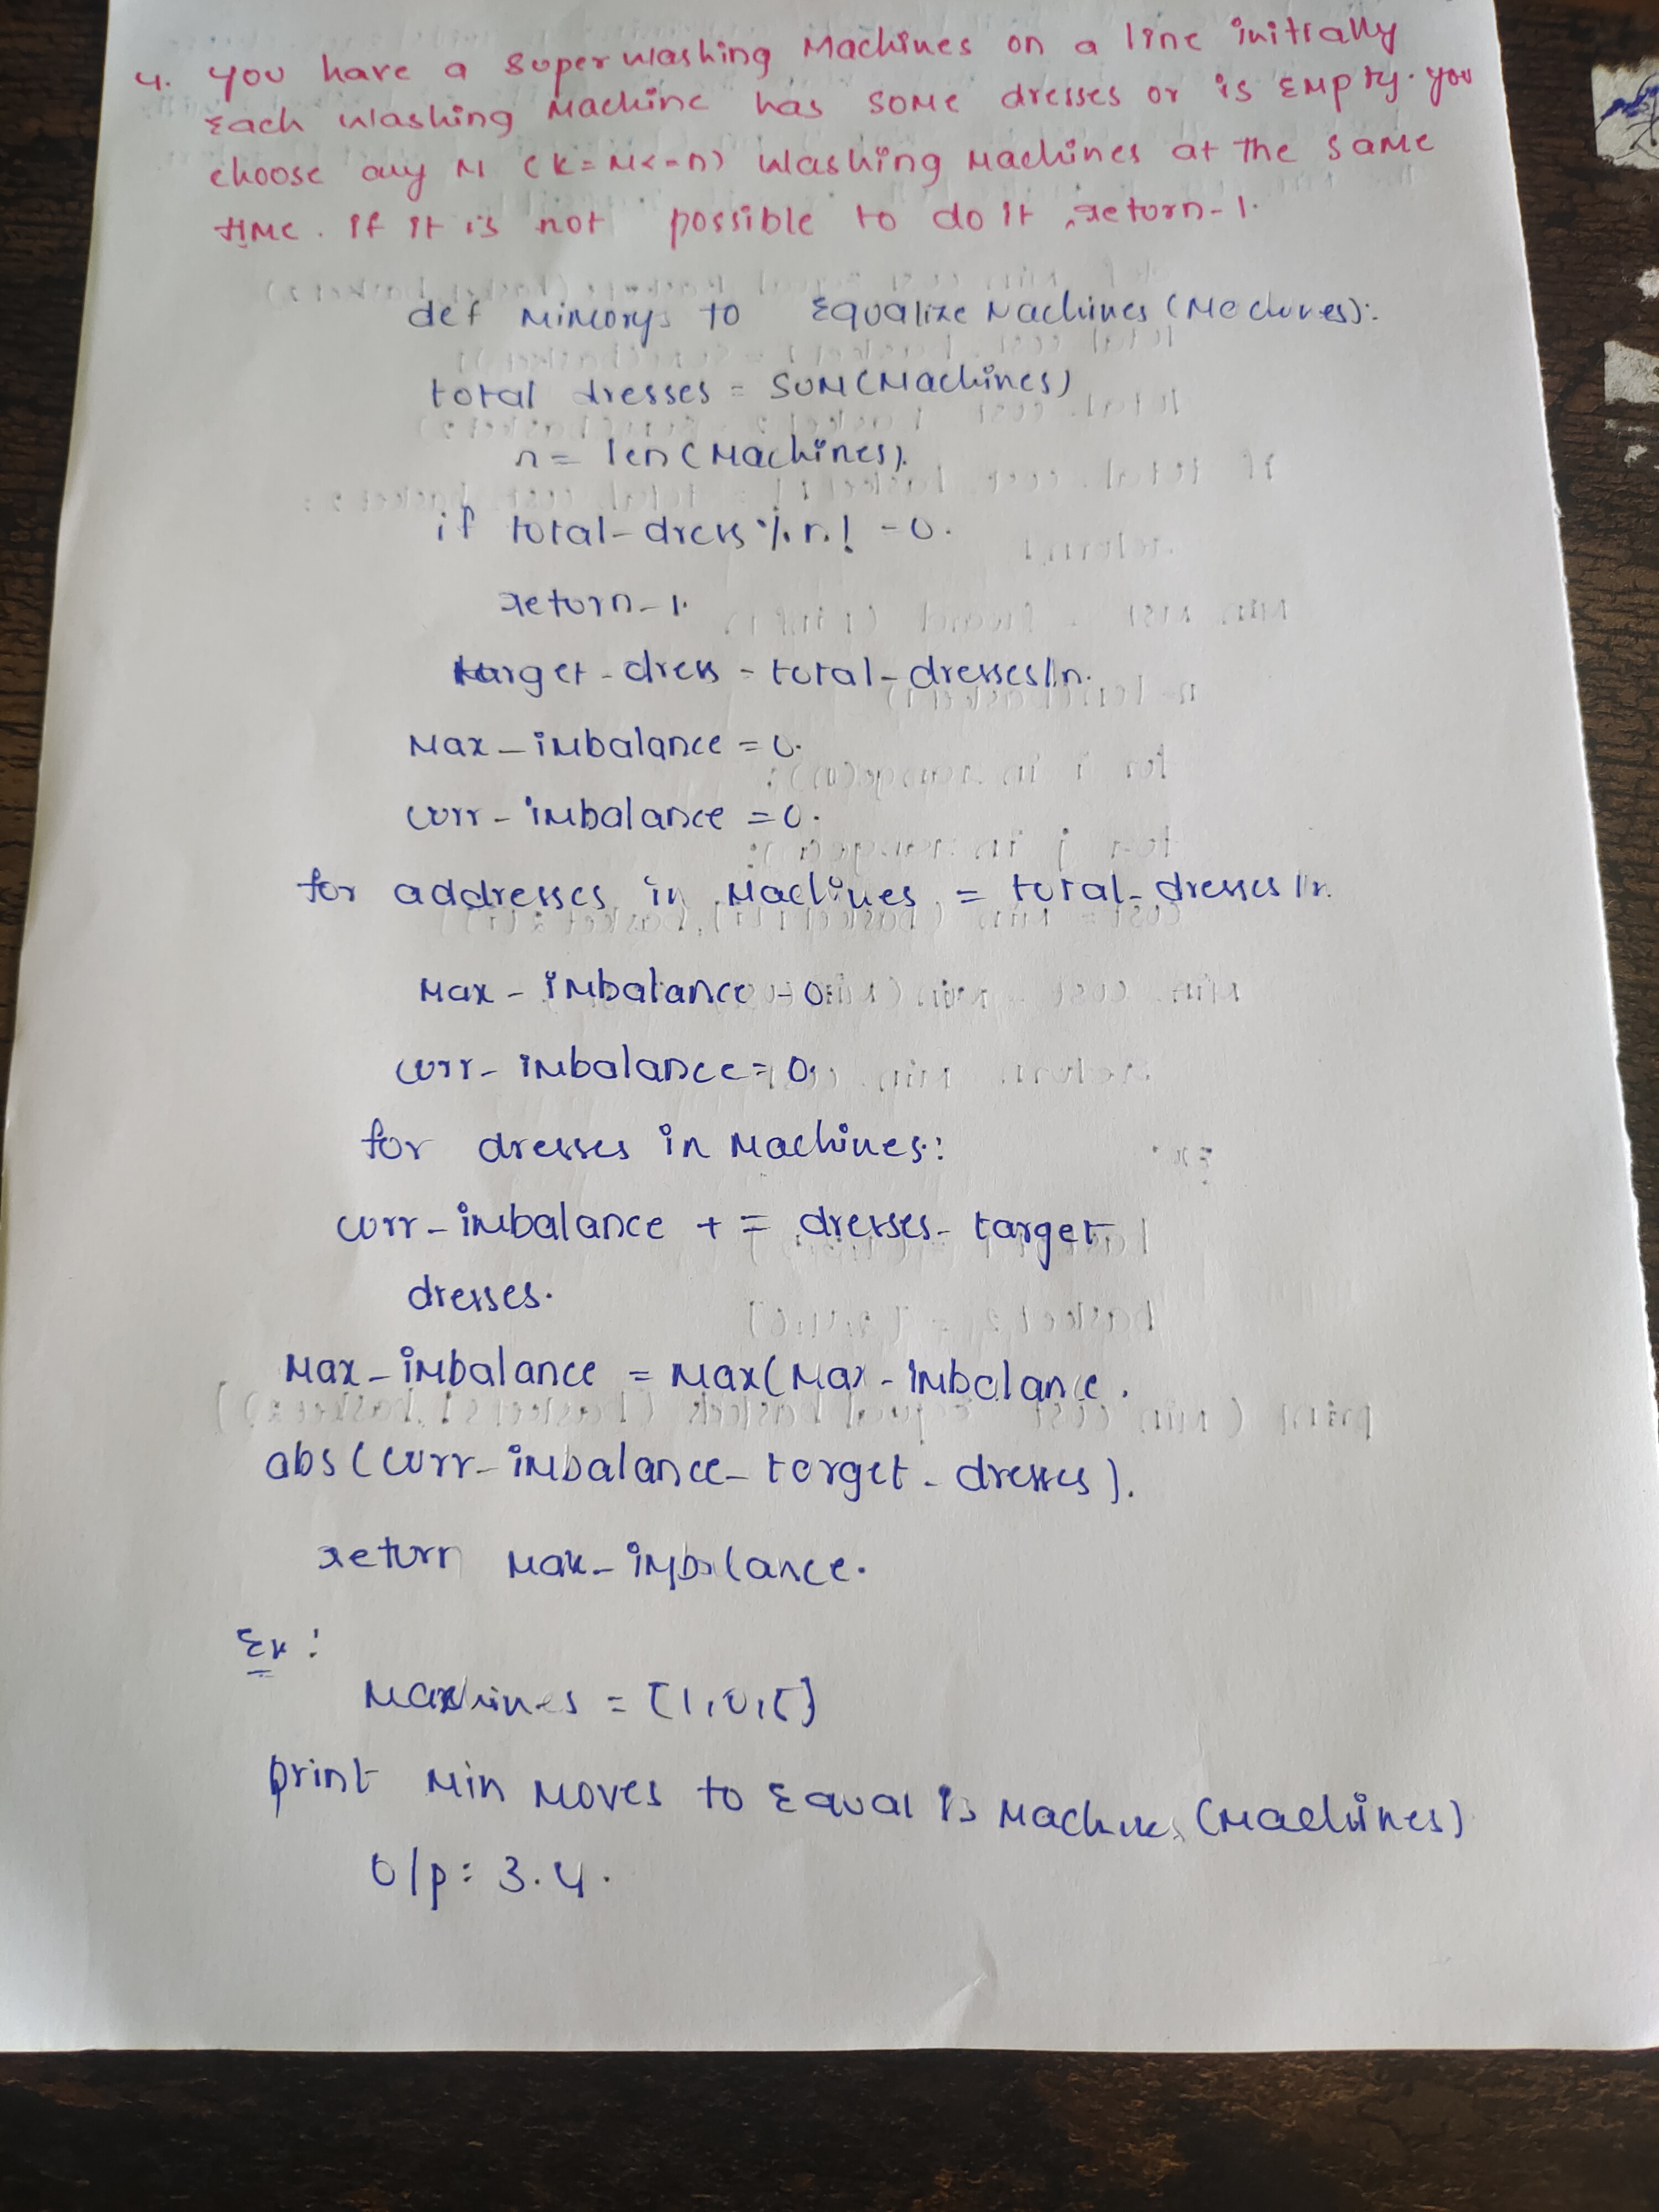 4. you have a super washing Machines on a line initially
Each washing Machine has some dresses or is Empty. you
choose any M (k=M<=n) washing Machines at the same
time. If it is not possible to do it, return-1.
def Mimorys to Equalize Machines (Mechines):
total dresses = SUM(Machines)
n = len(Machines).
if total-dress % n! -0.
return-1.
target-dress - total-dresses//n.
Max-imbalance = 0.
curr-imbalance = 0.
for addresses in Machines = total-dresses//n.
Max-imbalance = 0
curr-imbalance = 0.
for dresses in Machines:
curr-imbalance += dresses- target
dresses.
Max-imbalance = Max(Max-imbalance.
abs(curr-imbalance-target-dresses).
return Max-imbalance.
Ex:
Machines = [1,0,5]
print Min Moves to Equal is Machines (Machines)
o/p: 3.4.